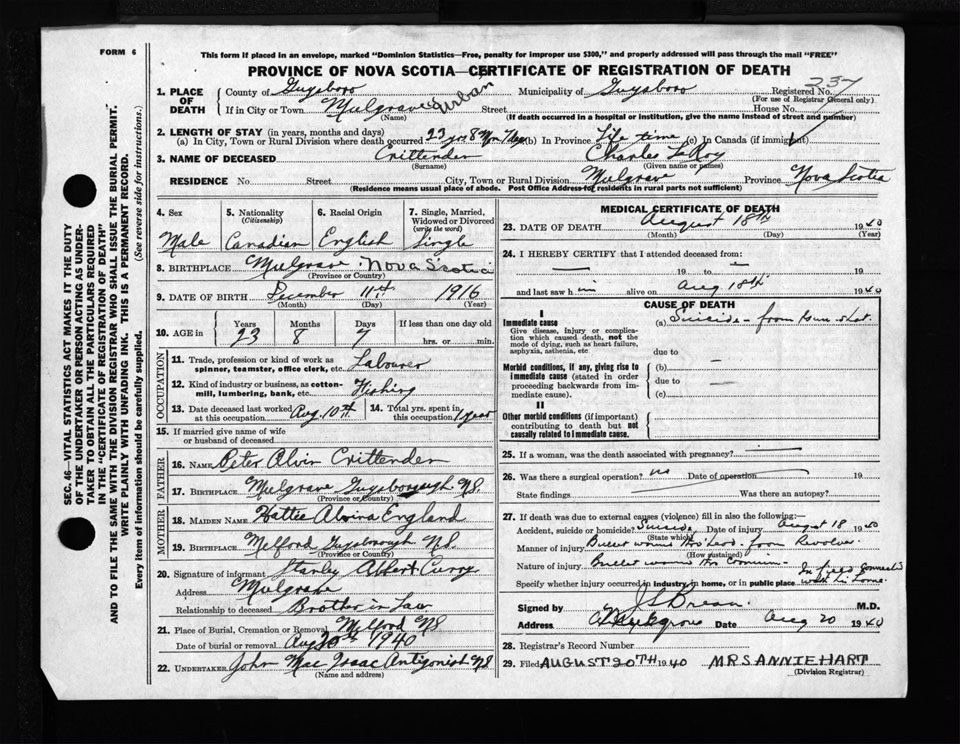 FORM 6
This form if placed in an envelope, marked "Dominion Statistics—Free, penalty for improper use $300," and properly addressed will pass through the mail "FREE"
PROVINCE OF NOVA SCOTIA—CERTIFICATE OF REGISTRATION OF DEATH
1. PLACE OF DEATH County of Guysboro Municipality of Guysboro Registered No. 237
(For use of Registrar General only)
If in City or Town Mulgrave Urban Street House No.
(Name) (If death occurred in a hospital or institution, give the name instead of street and number)
2. LENGTH OF STAY (in years, months and days)
(a) In City, Town or Rural Division where death occurred 23 yrs 8 Mon 7 days (b) In Province Life time (c) In Canada (if immigrant)
3. NAME OF DECEASED Crittenden Charles LeRoy
(Surname) (Given name or names)
RESIDENCE No. Street City, Town or Rural Division Mulgrave Province Nova Scotia
(Residence means usual place of abode. Post Office Address for residents in rural parts not sufficient)
4. Sex Male
5. Nationality (Citizenship) Canadian
6. Racial Origin English
7. Single, Married, Widowed or Divorced (write the word) Single
8. BIRTHPLACE Mulgrave Nova Scotia
(Province or Country)
9. DATE OF BIRTH December 11th 1916
(Month) (Day) (Year)
10. AGE in Years Months Days If less than one day old
23 8 7 hrs. or min.
OCCUPATION
11. Trade, profession or kind of work as spinner, teamster, office clerk, etc. Labourer
12. Kind of industry or business, as cotton-mill, lumbering, bank, etc. Fishing
13. Date deceased last worked at this occupation Aug 10th 14. Total yrs. spent in this occupation 1 year
15. If married give name of wife or husband of deceased
FATHER
16. NAME Peter Alvin Crittenden
17. BIRTHPLACE Mulgrave Guysborough NS.
(Province or Country)
MOTHER
18. MAIDEN NAME Hattie Alvina England
19. BIRTHPLACE Melford Guysborough NS.
(Province or Country)
20. Signature of informant Stanley Albert Curry
Address Mulgrave
Relationship to deceased Brother in Law
21. Place of Burial, Cremation or Removal Melford NS
Date of burial or removal Aug 20th 1940
22. UNDERTAKER John Mac Isaac Antigonish NS
(Name and address)
MEDICAL CERTIFICATE OF DEATH
23. DATE OF DEATH August 18th 1940
(Month) (Day) (Year)
24. I HEREBY CERTIFY that I attended deceased from:
— 19 to — 19
and last saw him alive on Aug 18th 1940
CAUSE OF DEATH
I
Immediate cause (a) Suicide - from Gun shot.
Give disease, injury or complication which caused death, not the mode of dying, such as heart failure, asphyxia, asthenia, etc.
due to
Morbid conditions, if any, giving rise to immediate cause (stated in order proceeding backwards from immediate cause).
(b) —
due to —
(c)
II
Other morbid conditions (if important) contributing to death but not causally related to immediate cause.
25. If a woman, was the death associated with pregnancy? —
26. Was there a surgical operation? no Date of operation 19
State findings Was there an autopsy?
27. If death was due to external causes (violence) fill in also the following:—
Accident, suicide or homicide? Suicide Date of injury August 18 1940
(State which)
Manner of injury Bullet wound thro' Head from Revolver
(How sustained)
Nature of injury Bullet wound thro Cranium
Specify whether injury occurred in industry, in home, or in public place In field connected with his home
Signed by J S Brean M.D.
Address Mulgrave Date Aug 20 1940
28. Registrar's Record Number
29. Filed AUGUST 20TH 1940 MRS ANNIE HART
(Division Registrar)
SEC. 46—VITAL STATISTICS ACT MAKES IT THE DUTY
OF THE UNDERTAKER OR PERSON ACTING AS UNDER-
TAKER TO OBTAIN ALL THE PARTICULARS REQUIRED
IN THE "CERTIFICATE OF REGISTRATION OF DEATH"
AND TO FILE THE SAME WITH THE DIVISION REGISTRAR WHO SHALL ISSUE THE BURIAL PERMIT.
WRITE PLAINLY WITH UNFADING INK. THIS IS A PERMANENT RECORD.
Every item of information should be carefully supplied. (See reverse side for instructions.)